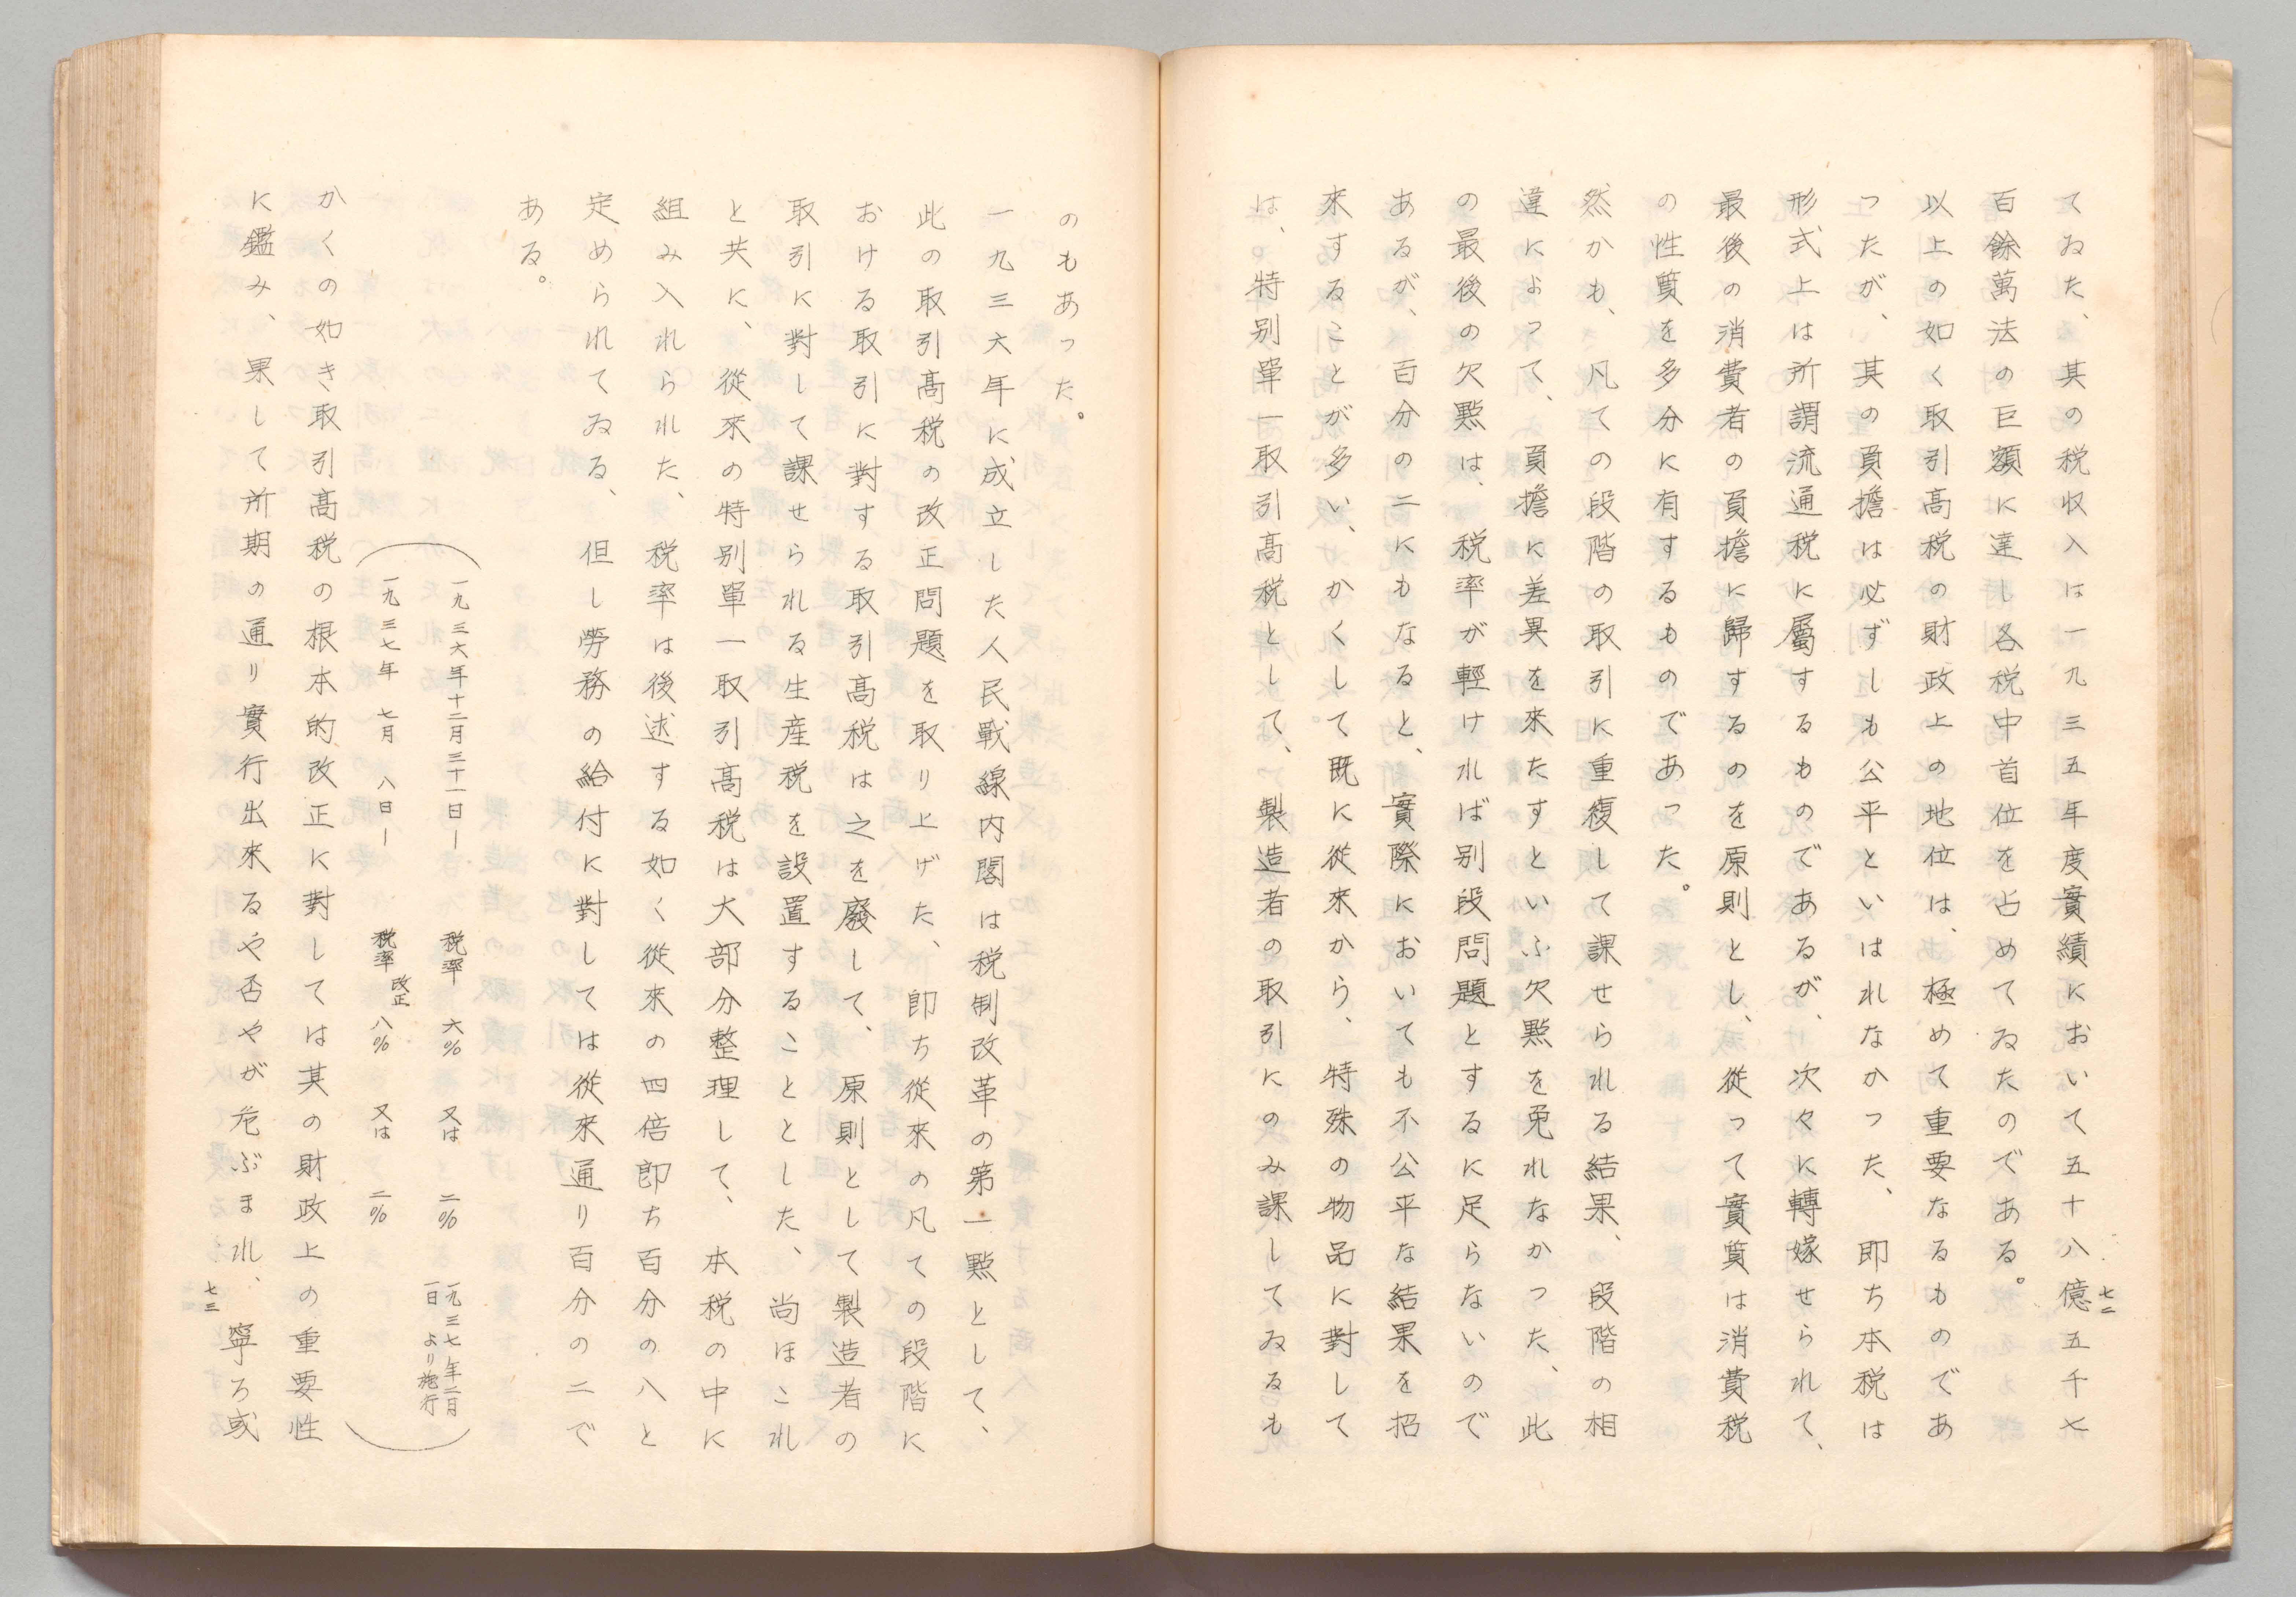 てゐた、其の税収入は一九三五年度實績において五十八億五千七
百餘萬法の巨額に達し各税中首位を占めてゐたのである。
以上の如く取引高税の財政上の地位は、極めて重要なるものであ
つたが、其の負擔は必ずしも公平といはれなかつた、即ち本税は
形式上は所謂流通税に屬するものであるが、次々に轉嫁せられて、
最後の消費者の負擔に歸するのを原則とし、從って實質は消費税
の性質を多分に有するものであった。
然かも、凡ての段階の取引に重復して課せられる結果、段階の相
違によって、負擔に差異を來たすといふ欠點を免れなかった、此
の最後の欠點は、税率が輕ければ別段問題とするに足らないので
あるが、百分の二にもなると、實際においても不公平な結果を招
來することが多い、かくして既に從來から、特殊の物品に對して
は、特別單一取引高税として、製造者の取引にのみ課してゐるも
七二
のもあった。
一九三六年に成立した人民戰線内閣は税制改革の第一點として、
此の取引高税の改正問題を取り上げた、即ち從來の凡ての段階に
おける取引に對する取引高税は之を廢して、原則として製造者の
取引に對して課せられる生産税を設置することとした、尚ほこれ
と共に、從來の特別單一取引高税は大部分整理して、本税の中に
組み入れられた、税率は後述する如く從來の四倍即ち百分の八と
定められてゐる、但し勞務の給付に對しては從來通り百分の二で
ある。
一九三六年十二月三十一日― 税率 六% 又は 二% 一九三七年一月一日より施行
一九三七年 七月 八日― 税率改正 八% 又は 二%
かくの如き取引高税の根本的改正に對しては其の財政上の重要性
に鑑み、果して所期の通り實行出來るや否やが危ぶまれ、寧ろ或
七三